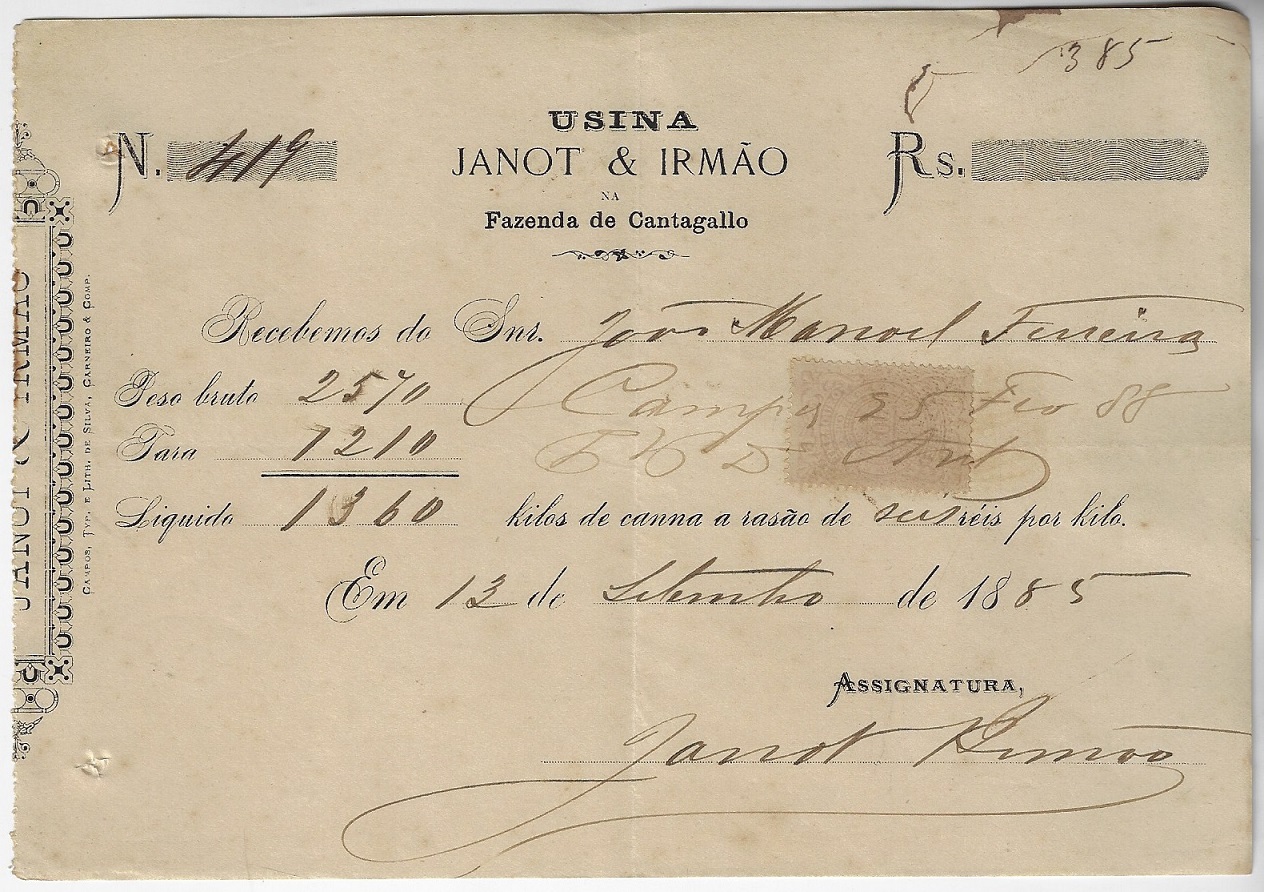 385
USINA
N. 419
JANOT & IRMÃO
Rs.
NA
Fazenda de Cantagallo
JANOT & IRMÃO
CAMPOS, TYP. E LITH. DE SILVA, CARNEIRO & COMP.
Recebemos do Snr. João Manoel Ferreira
Peso bruto 2570
Campos 25 Fro 88
Tara 1210
Liquido 1360 kilos de canna a rasão de seis réis por kilo.
Em 13 de Setembro de 1885
ASSIGNATURA,
Janot Irmão